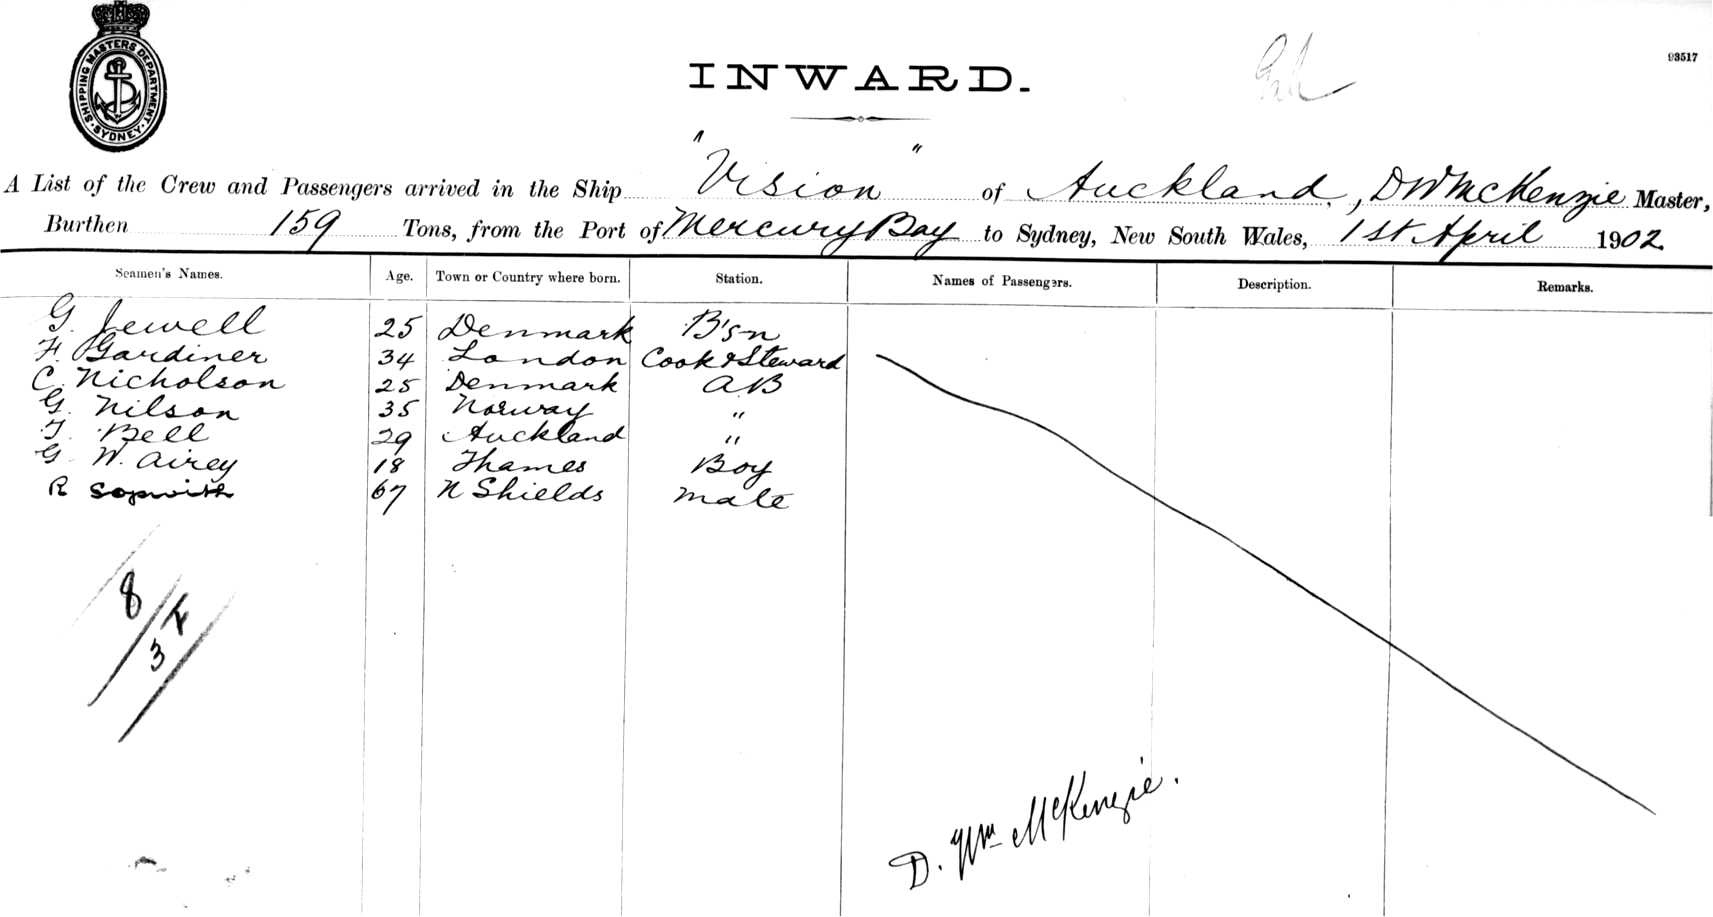 SHIPPING MASTERS DEPARTMENT
SYDNEY
93517
INWARD.
A List of the Crew and Passengers arrived in the Ship "Vision" of Auckland, D W McKenzie Master,
Burthen 159 Tons, from the Port of Mercury Bay to Sydney, New South Wales, 1st April 1902
Seamen's Names. Age. Town or Country where born. Station. Names of Passengers. Description. Remarks.
G. Jewell 25 Denmark B's-n
F. Gardiner 34 London Cook & Steward
C. Nicholson 25 Denmark AB
G. Nilson 35 Norway "
T. Bell 29 Auckland "
G. W. Airey 18 Thames Boy
R Sopwith 67 N Shields mate
8
3 F
D. Wm McKenzie.